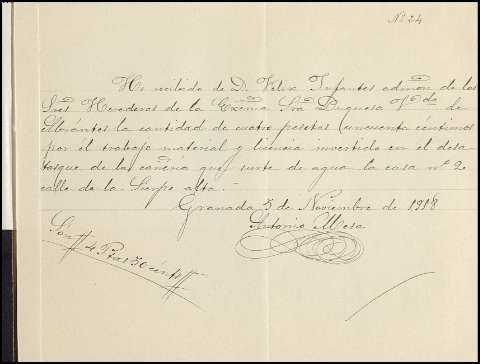 Nº 24
He recibido de D. Felix Infantes admon de los
Sres Herederos de la Excma Sra Duquesa Vda de
Abrantes la cantidad de cuatro pesetas cincuenta céntimos
por el trabajo material y licencia invertido en el desa
tasque de la cañeria que surte de agua la casa nº 2
calle de la Sierpe alta. —
Granada 3 de Noviembre de 1918
Antonio Mesa
Son # 4 Ptas 50 cénts #